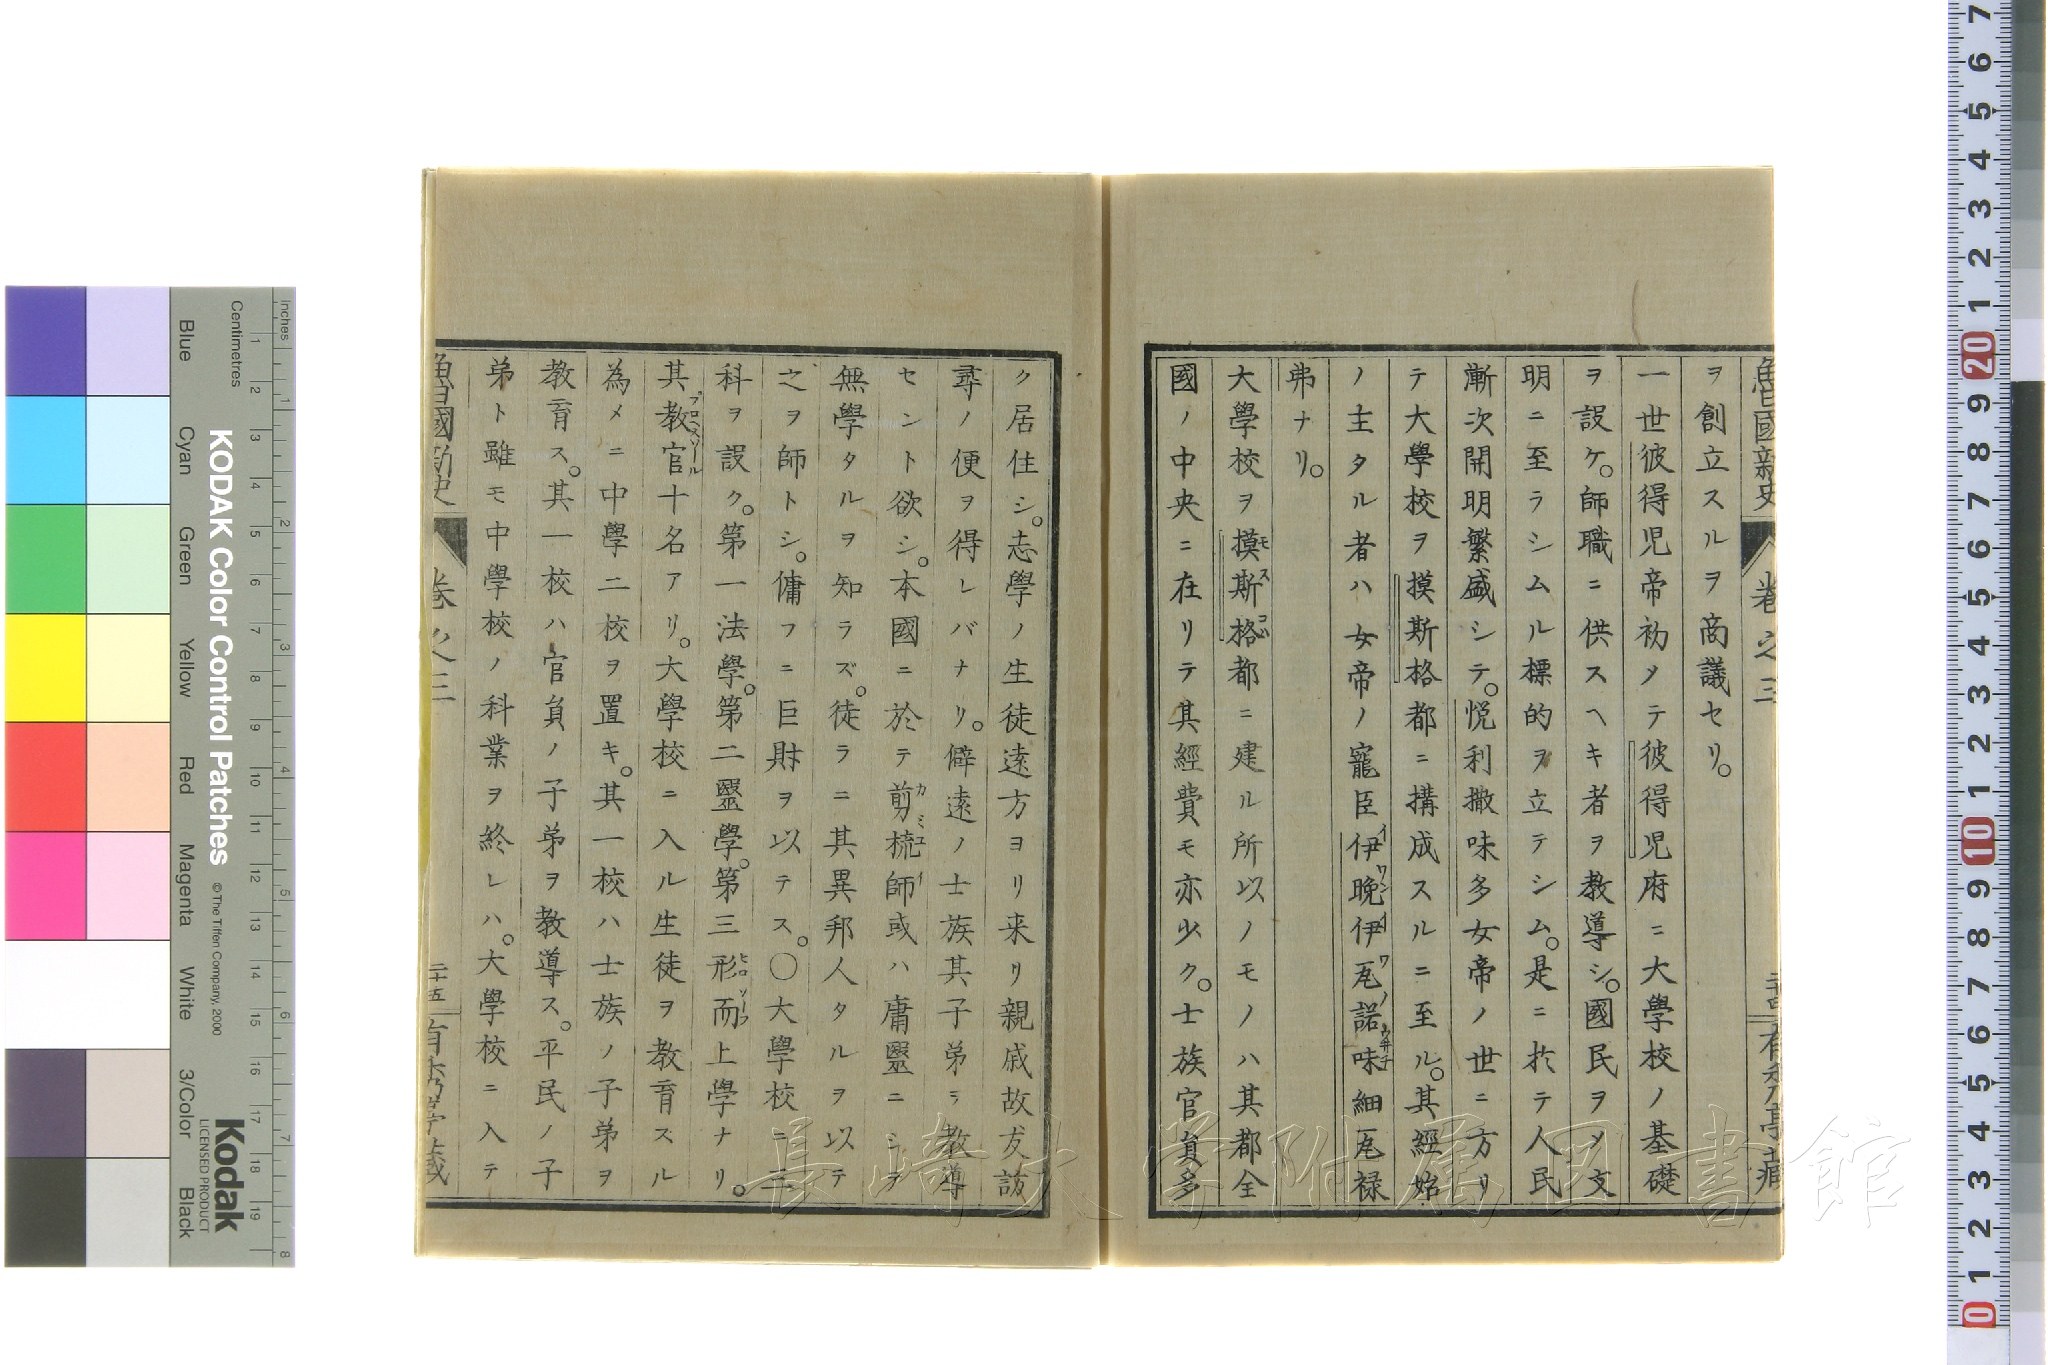 魯國新史 巻之三 二十四 有秀亭藏
ヲ創立スルヲ商議セリ。
一世彼得児帝初メテ彼得児府ニ大學校ノ基礎
ヲ設ケ。師職ニ供スヘキ者ヲ教導シ。國民ヲメ文
明ニ至ラシムル標的ヲ立テシム。是ニ於テ人民
漸次開明繁盛シテ。悦利撒味多女帝ノ世ニ方リ
テ大學校ヲ摸斯格都ニ搆成スルニ至ル。其經始
ノ主タル者ハ女帝ノ寵臣伊晩伊瓦諾味細瓦禄
弗ナリ。
大學校ヲ摸斯格都ニ建ル所以ノモノハ其都全
國ノ中央ニ在リテ其經費モ亦少ク。士族官員多
ク居住シ。志學ノ生徒遠方ヨリ来リ親戚故友訪
尋ノ便ヲ得レバナリ。僻遠ノ士族其子弟ヲ教導
セント欲シ。本國ニ於テ剪梳師或ハ庸毉ニシテ
無學タルヲ知ラズ。徒ラニ其異邦人タルヲ以テ
之ヲ師トシ。傭フニ巨財ヲ以テス。〇大學校ニ三
科ヲ設ク。第一法學。第二毉學。第三形而上學ナリ。
其教官十名アリ。大學校ニ入ル生徒ヲ教育スル
為メニ中學二校ヲ置キ。其一校ハ士族ノ子弟ヲ
教育ス。其一校ハ官員ノ子弟ヲ教導ス。平民ノ子
弟ト雖モ中學校ノ科業ヲ終レハ。大學校ニ入テ
魯國新史 巻之三 二十五 有秀亭藏
長崎大学附属図書館
KODAK Color Control Patches
© The Tiffen Company, 2000
Kodak
LICENSED PRODUCT
Inches
Centimetres
Blue
Cyan
Green
Yellow
Red
Magenta
White
3/Color
Black